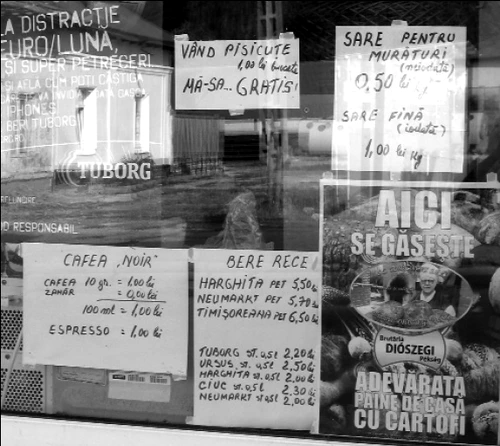 LA DISTRACȚIE
EURO/LUNĂ,
ȘI SUPER PETRECERI
ȘI AFLĂ CUM POȚI CÂȘTIGA
IPHONES
BERI TUBORG
TUBORG
RESPONSABIL
VÂND PISICUȚE
1,00 lei bucata
MĂ-SA... GRATIS!
SARE PENTRU
MURĂTURI
(neiodată)
0,50 lei kg
SARE FINĂ
(iodată)
1,00 lei kg
CAFEA „NOIR"
CAFEA 10 gr. = 1,00 lei
ZAHĂR = 0,00 lei
100 ml = 1,00 lei
ESPRESSO = 1,00 lei
BERE RECE
HARGHITA PET 5,50 lei
NEUMARKT PET 5,70 lei
TIMIȘOREANA PET 6,50 lei
TUBORG st. 0,5 l 2,20 lei
URSUS st. 0,5 l 2,50 lei
HARGHITA st. 0,5 l 2,00 lei
CIUC st. 0,5 l 2,30 lei
NEUMARKT st. 0,5 l 2,00 lei
AICI
SE GĂSEȘTE
Brutăria
DIÓSZEGI
Pékség
ADEVĂRATA
PÂINE DE CASĂ
CU CARTOFI